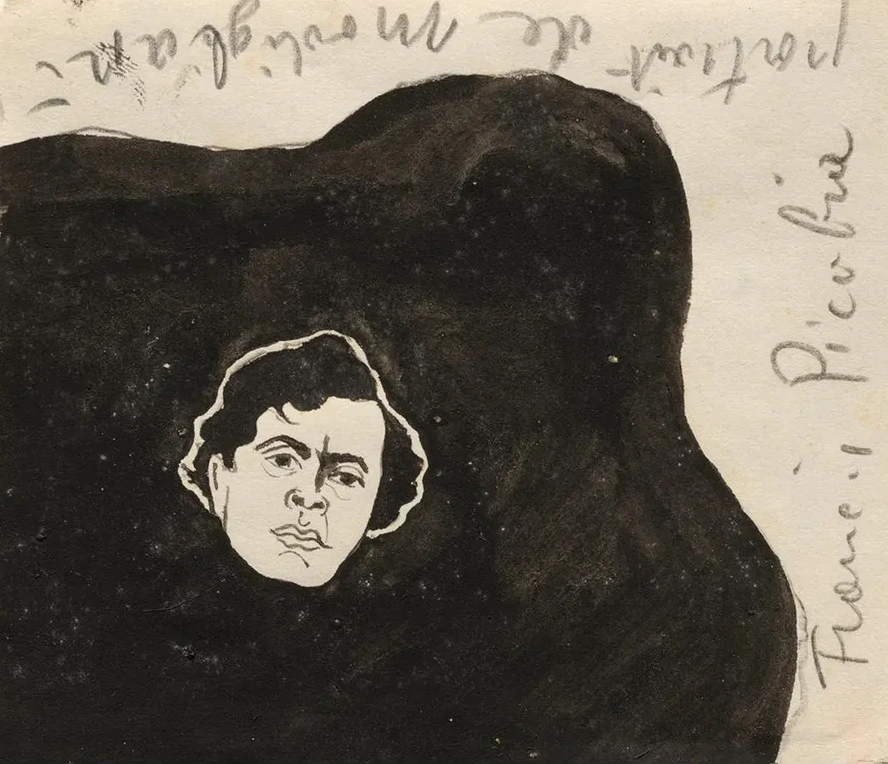 portrait de Modigliani
Francis Picabia